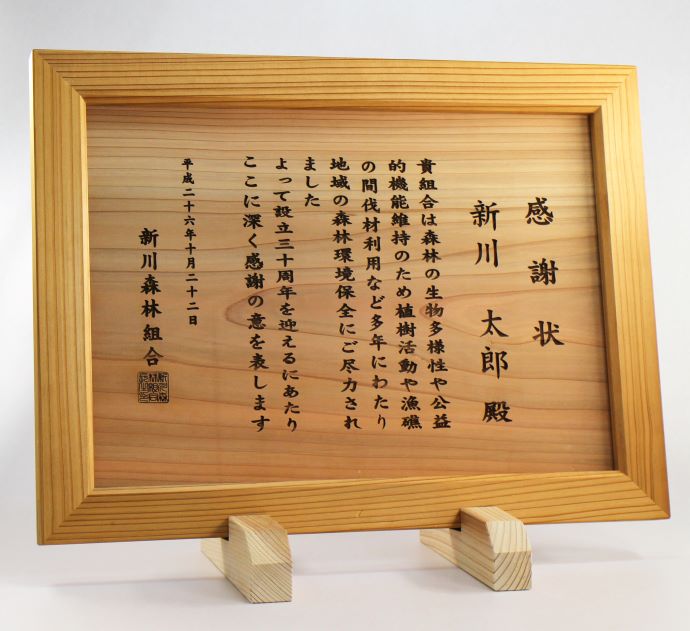 感謝状
新川 太郎 殿
貴組合は森林の生物多様性や公益
的機能維持のため植樹活動や漁礁
の間伐材利用など多年にわたり
地域の森林環境保全にご尽力され
ました
よって設立三十周年を迎えるにあたり
ここに深く感謝の意を表します
平成二十六年十月二十二日
新川森林組合